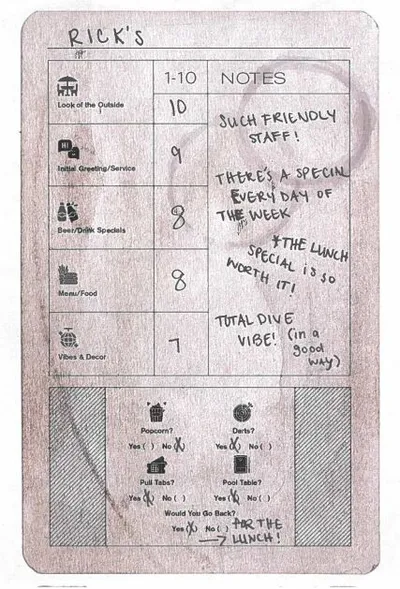 RICK'S
1-10 NOTES
Look of the Outside 10
SUCH FRIENDLY
STAFF!
Initial Greeting/Service 9
THERE'S A SPECIAL
EVERY DAY OF
THE WEEK
Beer/Drink Specials 8
*THE LUNCH
SPECIAL is so
WORTH IT!
Menu/Food 8
TOTAL DIVE
VIBE! (in a
good
way)
Vibes & Decor 7
Popcorn? Darts?
Yes ( ) No (X) Yes (X) No ( )
Pull Tabs? Pool Table?
Yes (X) No ( ) Yes (X) No ( )
Would You Go Back?
Yes (X) No ( ) FOR THE
→ LUNCH!